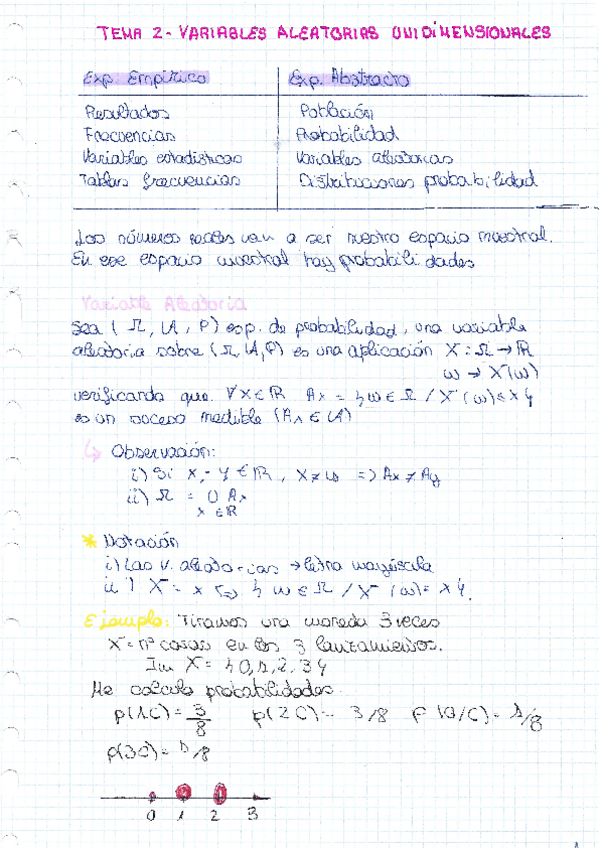 TEMA 2- VARIABLES ALEATORIAS UNIDIMENSIONALES
Exp. Empírico Exp. Abstracto
Resultados Población
Frecuencias Probabilidad
Variables estadísticas Variables aleatorias
Tablas frecuencias Distribuciones probabilidad
Los números reales van a ser nuestro espacio muestral.
En ese espacio muestral hay probabilidades
Variable Aleatoria
Sea (Ω, A, P) esp. de probabilidad, una variable
aleatoria sobre (Ω, A, P) es una aplicación X: Ω → ℝ
ω → X(ω)
verificando que ∀x∈ℝ Ax = {ω∈Ω / X(ω)≤x}
es un suceso medible (Ax ∈ A)
↳ Observación:
i) Si x, y ∈ ℝ, x≠y => Ax ≠ Ay
ii) Ω = ∪ Ax
x∈ℝ
* Notación
i) Las v. aleatorias → letra mayúscula
ii) X = x => {ω∈Ω / X(ω)= x}.
Ejemplo: Tiramos una moneda 3 veces
X = nº caras en los 3 lanzamientos.
Im X = {0,1,2,3}
Me calculo probabilidades.
p(1C) = 3/8 p(2C) = 3/8 P(0/C) = 1/8
p(3C) = 1/8
0 1 2 3
1